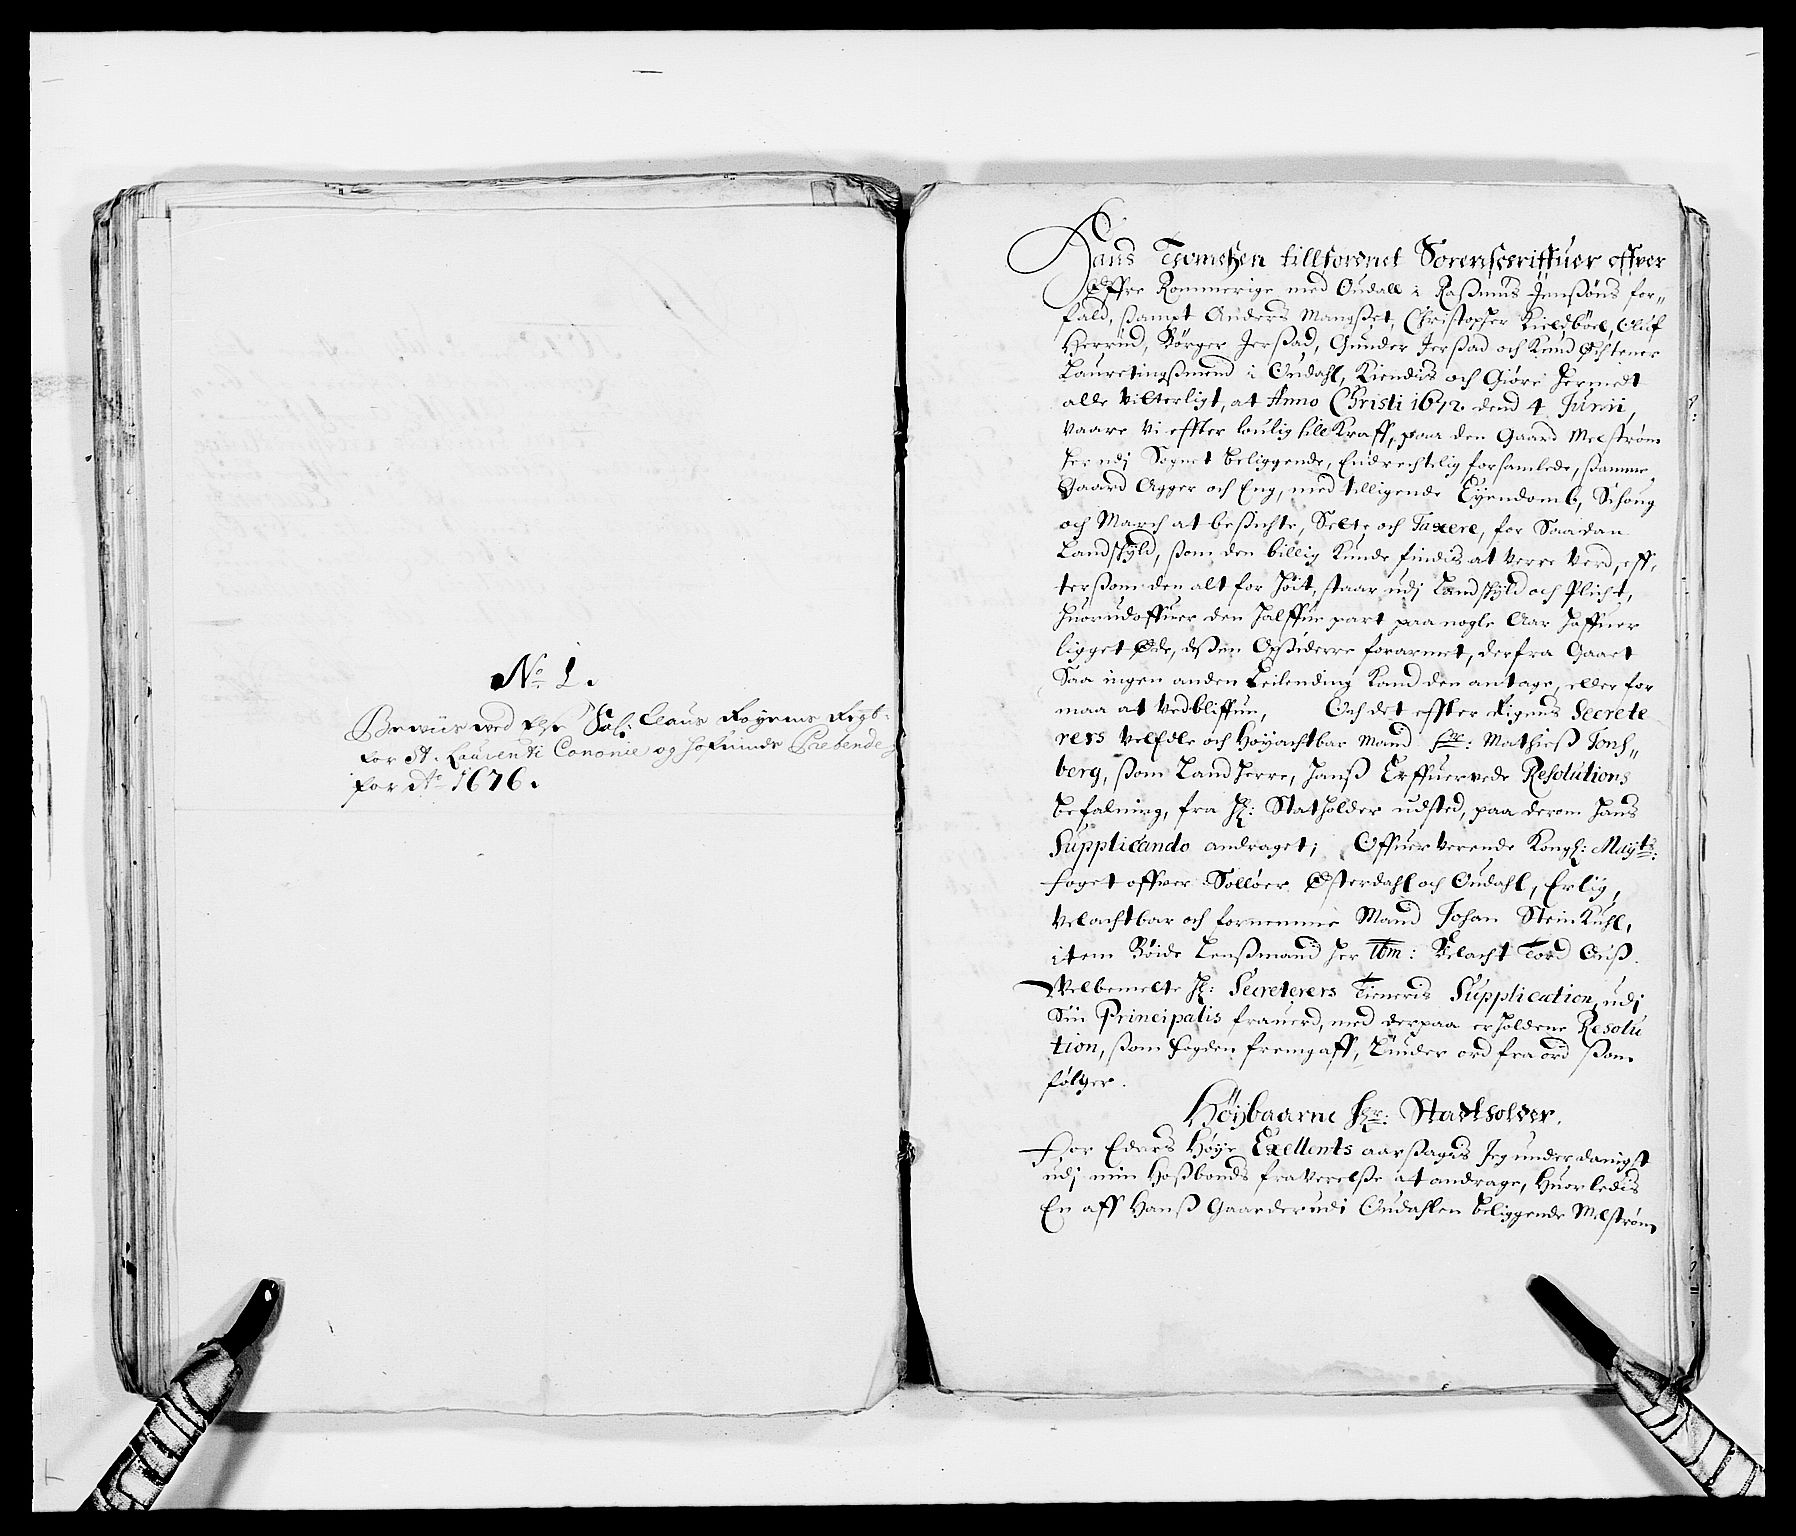 No 1.
Beviis ved Sal: Claus Røyems Regb:
for St. Laurenti Canonie, og hosfuinde Præbende
for Ao 1676.
Hans Thomeßen tillforonet Sorenschriffuer offver
Øffre Rommerige med Oudall i Raßmus Jenßøns for„
fald, sampt Anders Mangset, Christopher Kieldbøel, Oluf
Herrud, Børger Jerßad, Gunder Jerßad och Knud Ochtener
Laurettingßmend i Oudahl, Kiendis och Giøre hermedt
alle vitterligt, at Anno Christi 1672. dend 4 Junii,
vaare vi effter loulig tillKraff, paa den Gaard Melstrøm
her udj Sognet beliggende, Endrechtelig forsamlede, samme
Gaard Agger och Eng, med tilligende Eyendomb, Schoug
och March at besichte, Sette och Taxere, for Saadan
Landskyld, som den billig Kunde findis at verre verd, eff„
tersom den alt for høit, staar udj Landskyld och Plicht,
huorudoffuer den halffue part paa nogle Aar haffuer
ligget Øde, deßen Opsiderre forarmet, derfra Gaaet
Saa ingen anden Leilending Kand den antage, eller for
maa at vedbliffue, Och det effter Rigens Secrete
rers velEdle och Høyachtbar Mand Hr: Mathiesß Tons„
berg, som Landherre, hanß Erffuervede Resolutions
befalning, fra Hr: Statholder udsted, paa derom hans
Supplicando andraget; Offuerverende Kongl: Mayts:
foget offver Solløer Østerdahl och Oudahl, Erlig,
Velachtbar och fornemme Mand Johan SteinKuhl,
item Bøide Lenßmand her ibm: Velacht Tord Ouß.
Velbemelte Hr: Secreterers Tieneris Supplication, udj
Sin Principalis fraverd, med derpaa erholdene Resolu
tion, som fogden fremgaff, Liuder ord fra ord som
følger.
Høybaarne Hr: Stadtholder.
For Eders Høye Exellents aarsagis Jeg underdanigst
udj min Hoßbonds fraverelße at andrage, Huorledis
En aff Hanß Gaarder udi Oudahlen beliggende Melstrøm